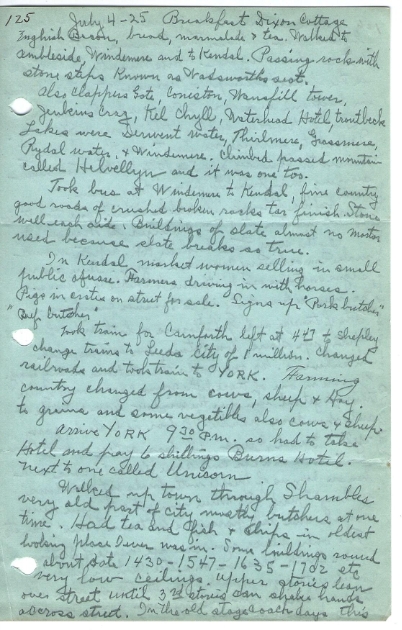 125
July 4-25 Breakfast Dixon Cottage
English Bacon, bread, marmalade & tea. Walked to
Ambleside, Windemere and to Kendal. Passing rocks with
stone steps known as Wadsworths seat,
also Clappers Gate, Coniston, Wansfill tower,
Jenkins Crag, Kel Ghyll, Waterhead Hotel, troutbeck
Lakes were Derwent water, Thirlmere, Grassmere,
Rydal water, & Windemere. Climbed passed mountain
called Helvellyn and it was one too.
Took bus at Windemere to Kendal, fine country
good roads of crushed broken rocks tar finish. Stone
wall each side. Buildings of slate almost no mortar
used because slate breaks so true.
In Kendal market women selling in small
public square. Farmers driving in with horses.
Pigs in crates on street for sale. Signs up "Pork butcher"
"Beef butcher".
Took train for Carnforth left at 4 47 to Shepley
change trains to Leeds City of 1 million. Changed
railroads and took train to YORK. Farming
country changed from cows, sheep & Hay,
to grains and some vegetibles also cows & sheep.
arrive YORK 9 20 P.M. so had to take
Hotel and pay 6 shillings Burns Hotel.
next to one called Unicorn
Walked up town through Shambles
very old part of city mostly butchers at one
time. Had tea and fish & chips in oldest
looking place I ever was in. Some buildings round
about date 1430-1547-1635-1702 etc
very low ceilings. upper stories lean
over street until 3rd stories can shake hands
across street. In the old stagecoach days this